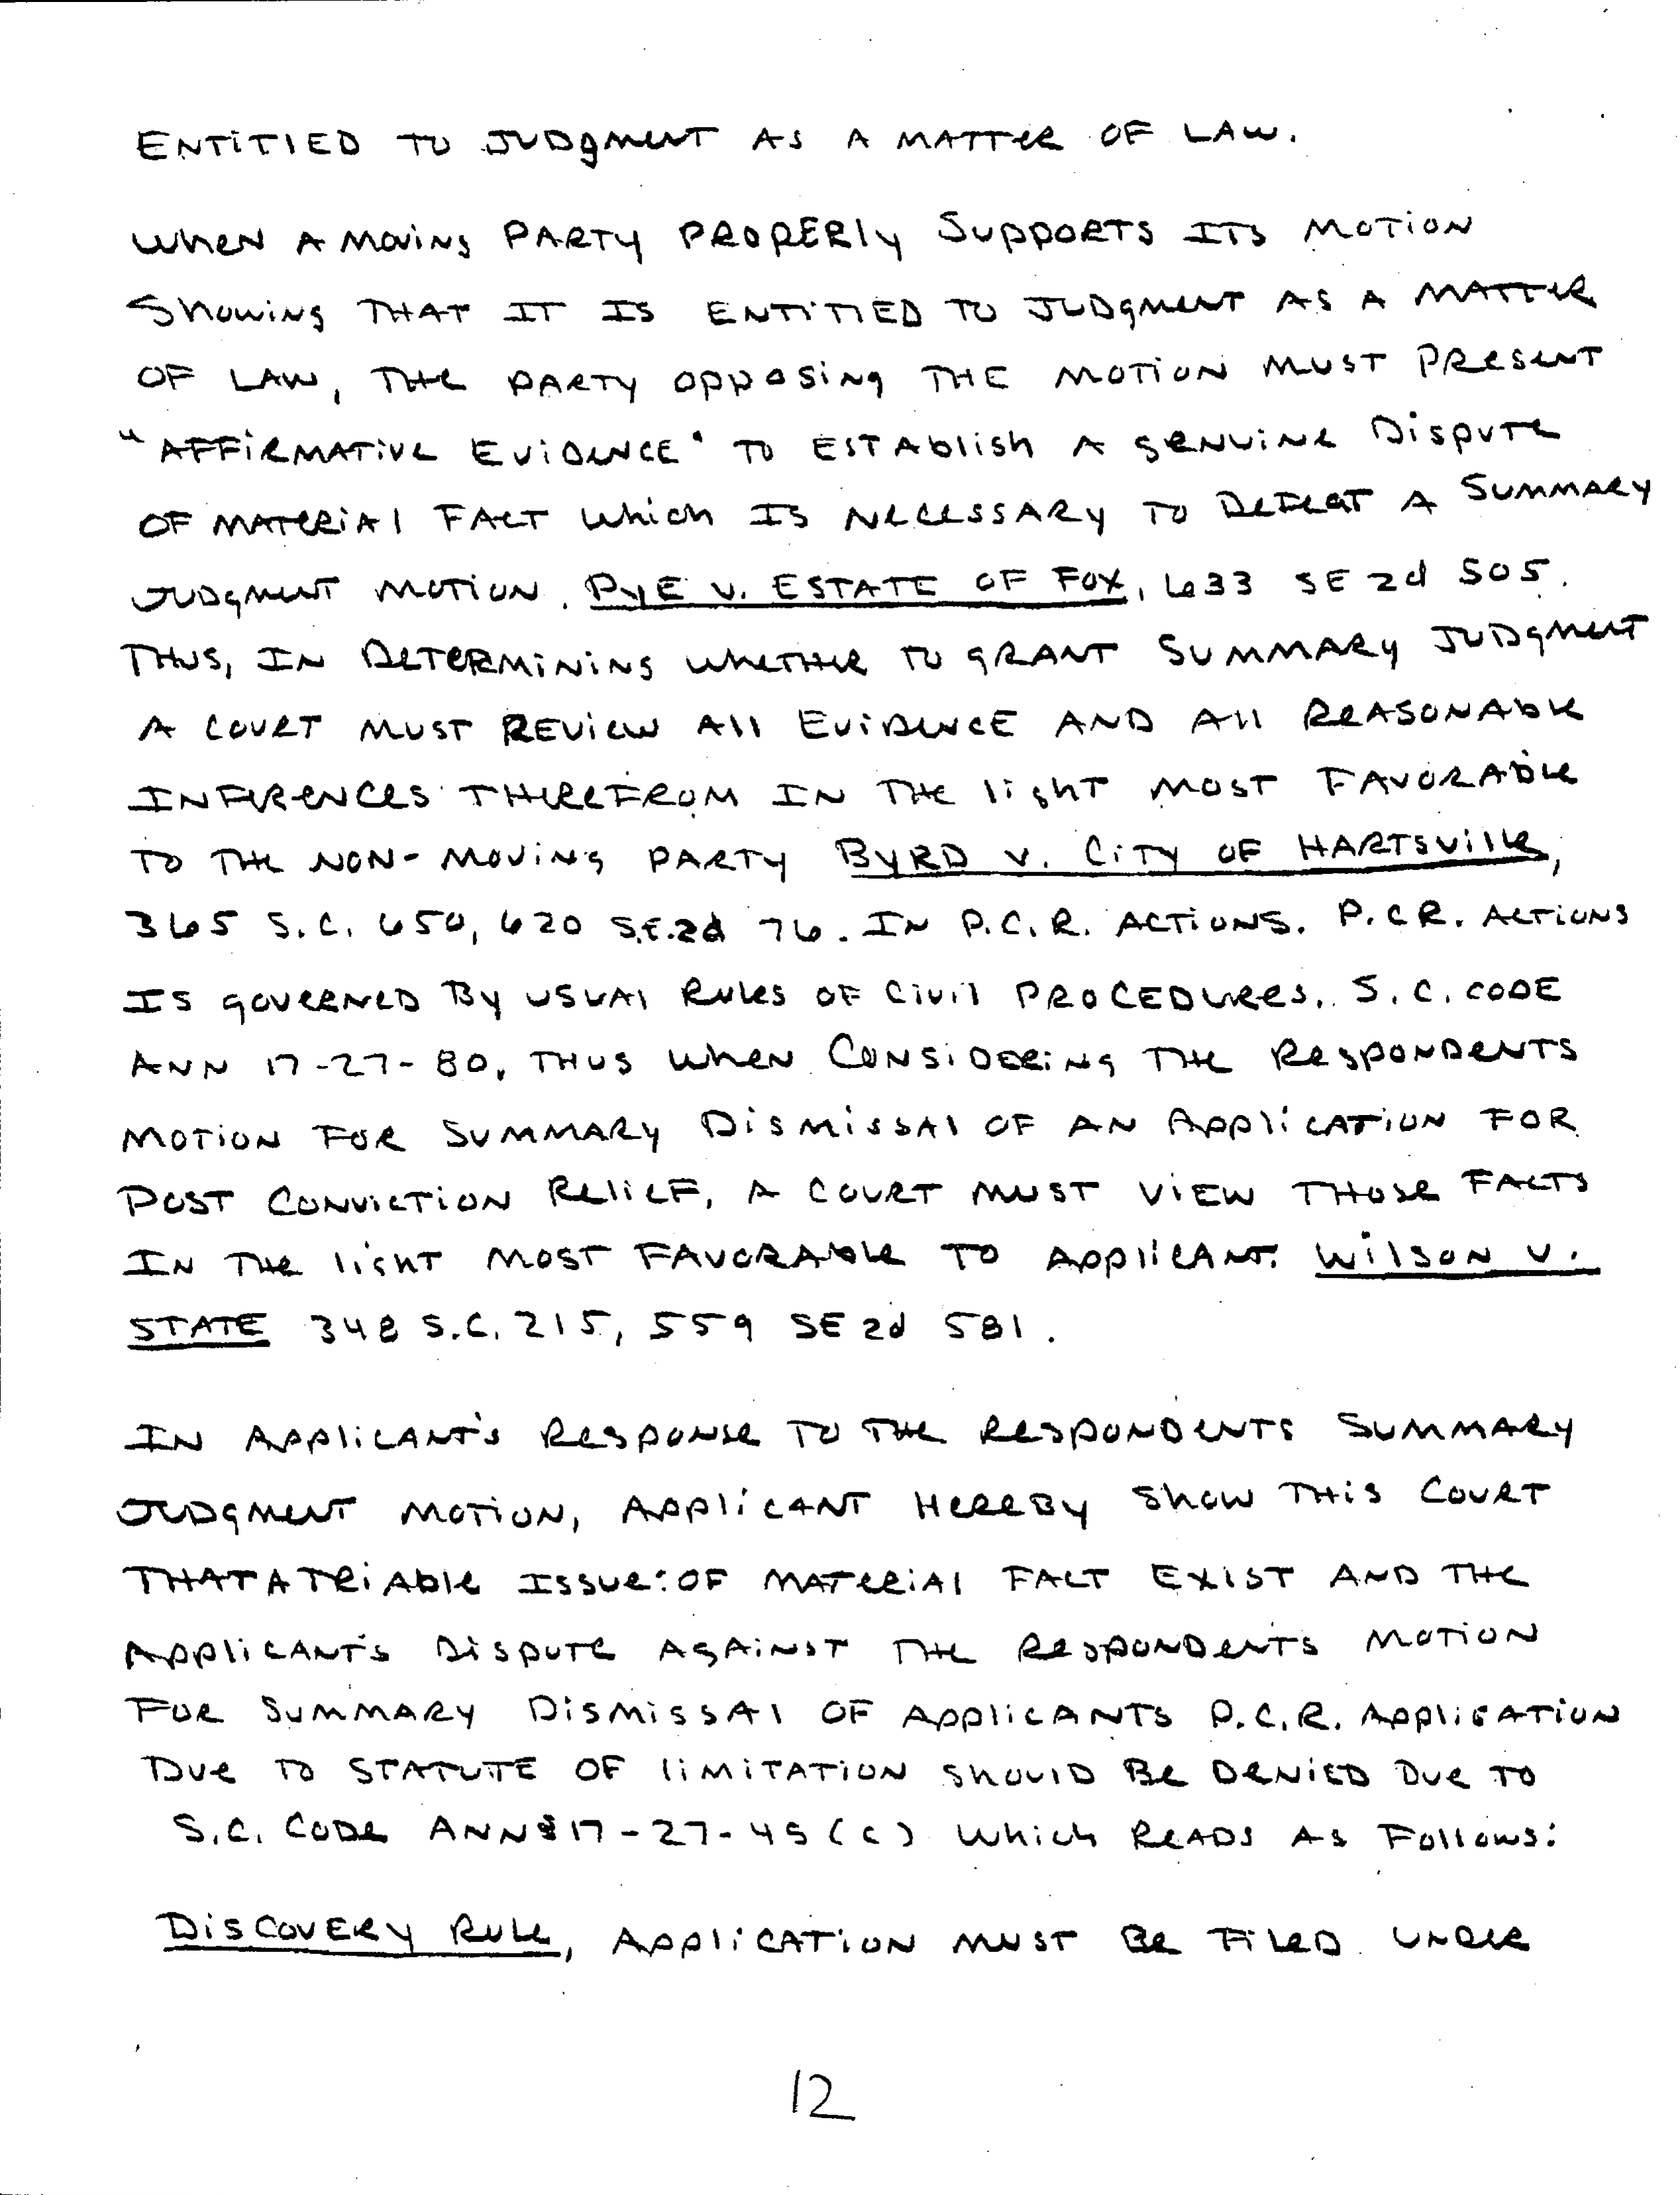 ENTITLED TO JUDGMENT AS A MATTER OF LAW.
WHEN A MOVING PARTY PROPERLY SUPPORTS ITS MOTION
SHOWING THAT IT IS ENTITLED TO JUDGMENT AS A MATTER
OF LAW, THE PARTY OPPOSING THE MOTION MUST PRESENT
"AFFIRMATIVE EVIDENCE" TO ESTABLISH A GENUINE DISPUTE
OF MATERIAL FACT WHICH IS NECESSARY TO DEFEAT A SUMMARY
JUDGMENT MOTION. PYE V. ESTATE OF FOX, 633 SE 2d 505.
THUS, IN DETERMINING WHETHER TO GRANT SUMMARY JUDGMENT
A COURT MUST REVIEW ALL EVIDENCE AND ALL REASONABLE
INFERENCES THEREFROM IN THE LIGHT MOST FAVORABLE
TO THE NON-MOVING PARTY BYRD V. CITY OF HARTSVILLE,
365 S.C. 650, 620 S.E.2d 76. IN P.C.R. ACTIONS. P.C.R. ACTIONS
IS GOVERNED BY USUAL RULES OF CIVIL PROCEDURES. S.C. CODE
ANN 17-27-80, THUS WHEN CONSIDERING THE RESPONDENTS
MOTION FOR SUMMARY DISMISSAL OF AN APPLICATION FOR
POST CONVICTION RELIEF, A COURT MUST VIEW THOSE FACTS
IN THE LIGHT MOST FAVORABLE TO APPLICANT. WILSON V.
STATE 348 S.C. 215, 559 SE 2d 581.
IN APPLICANT'S RESPONSE TO THE RESPONDENTS SUMMARY
JUDGMENT MOTION, APPLICANT HEREBY SHOW THIS COURT
THAT A TRIABLE ISSUE: OF MATERIAL FACT EXIST AND THE
APPLICANT'S DISPUTE AGAINST THE RESPONDENT'S MOTION
FOR SUMMARY DISMISSAL OF APPLICANTS P.C.R. APPLICATION
DUE TO STATUTE OF LIMITATION SHOULD BE DENIED DUE TO
S.C. CODE ANN § 17-27-45 (C) WHICH READS AS FOLLOWS:
DISCOVERY RULE, APPLICATION MUST BE FILED UNDER
12